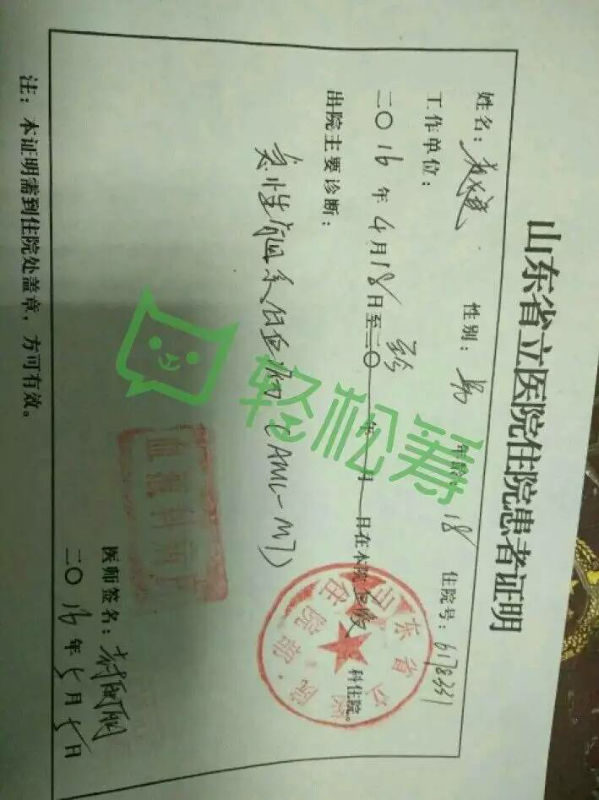 山东省立医院住院患者证明
姓名: 性别:男 年龄:18 住院号:6178331
工作单位:
二〇16年4月18日至二〇 年 月 日在本院 科住院。
出院主要诊断:
急性髓系白血病(AML-M7)
医师签名:
二〇16年5月5日
注:本证明需到住院处盖章,方可有效。
轻松筹
山东省立医院
住院部
血液科病房